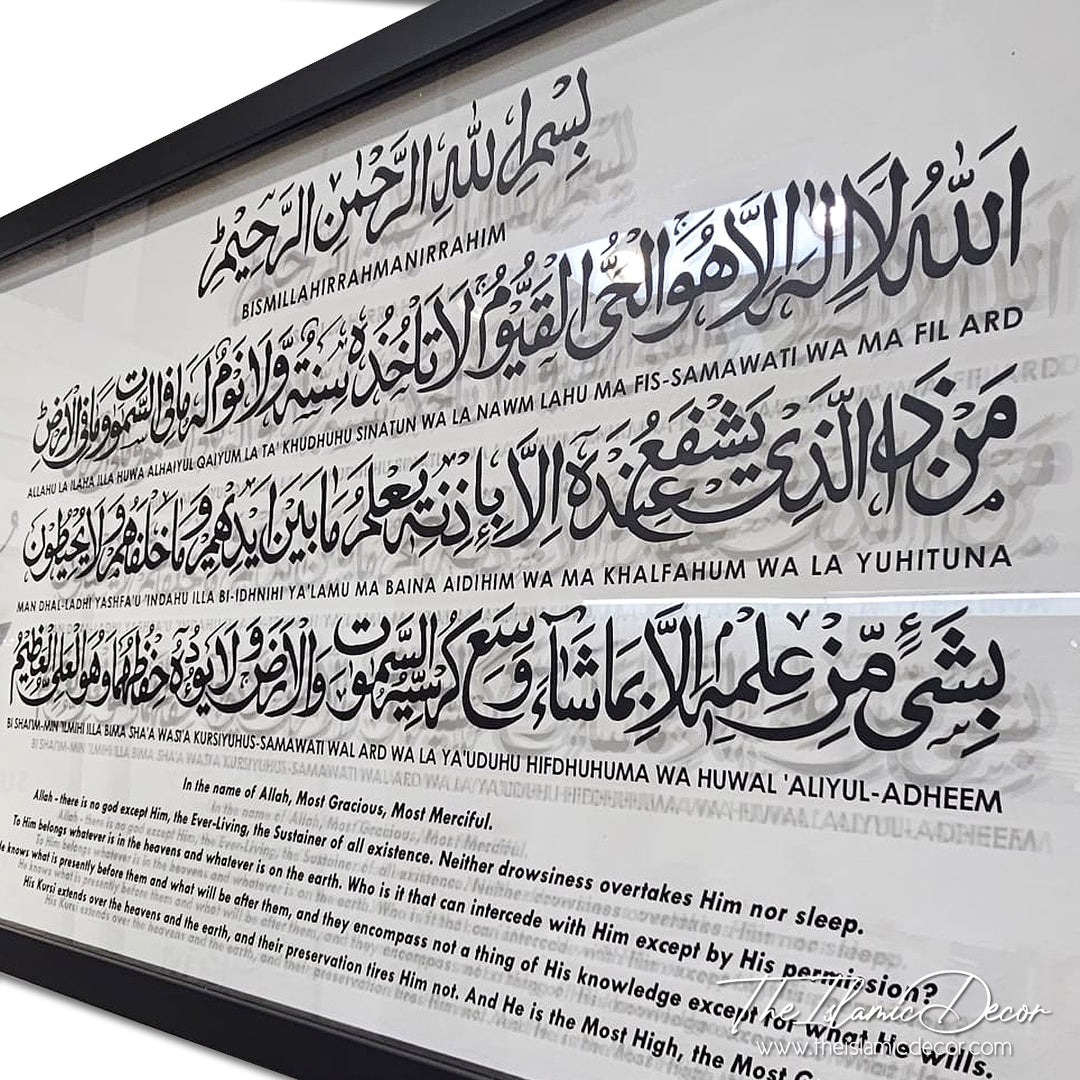 بِسْمِ اللهِ الرَّحْمٰنِ الرَّحِيْمِ
BISMILLAHIRRAHMANIRRAHIM
اَللّٰهُ لَاۤ اِلٰهَ اِلَّا هُوَ الْحَىُّ الْقَيُّوْمُ لَا تَاْخُذُهٗ سِنَةٌ وَّلَا نَوْمٌ لَهٗ مَا فِى السَّمٰوٰتِ وَمَا فِى الْاَرْضِ
ALLAHU LA ILAHA ILLA HUWA ALHAIYUL QAIYUM LA TA' KHUDHUHU SINATUN WA LA NAWM LAHU MA FIS-SAMAWATI WA MA FIL ARD
مَنْ ذَا الَّذِىْ يَشْفَعُ عِنْدَهٗ اِلَّا بِاِذْنِهٖ يَعْلَمُ مَا بَيْنَ اَيْدِيْهِمْ وَمَا خَلْفَهُمْ وَلَا يُحِيْطُوْنَ
MAN DHAL-LADHI YASHFA'U 'INDAHU ILLA BI-IDHNIHI YA'LAMU MA BAINA AIDIHIM WA MA KHALFAHUM WA LA YUHITUNA
بِشَىْءٍ مِّنْ عِلْمِهٖ اِلَّا بِمَا شَاۤءَ وَسِعَ كُرْسِيُّهُ السَّمٰوٰتِ وَالْاَرْضَ وَلَا يَـُٔوْدُهٗ حِفْظُهُمَا وَهُوَ الْعَلِىُّ الْعَظِيْمُ
BI SHAI'IM-MIN 'ILMIHI ILLA BIMA SHA'A WASI'A KURSIYUHUS-SAMAWATI WAL ARD WA LA YA'UDUHU HIFDHUHUMA WA HUWAL 'ALIYUL-ADHEEM
In the name of Allah, Most Gracious, Most Merciful.
Allah - there is no god except Him, the Ever-Living, the Sustainer of all existence. Neither drowsiness overtakes Him nor sleep.
To Him belongs whatever is in the heavens and whatever is on the earth. Who is it that can intercede with Him except by His permission?
knows what is presently before them and what will be after them, and they encompass not a thing of His knowledge except for what He wills.
His Kursi extends over the heavens and the earth, and their preservation tires Him not. And He is the Most High, the Most
The Islamic Decor
www.theislamicdecor.com